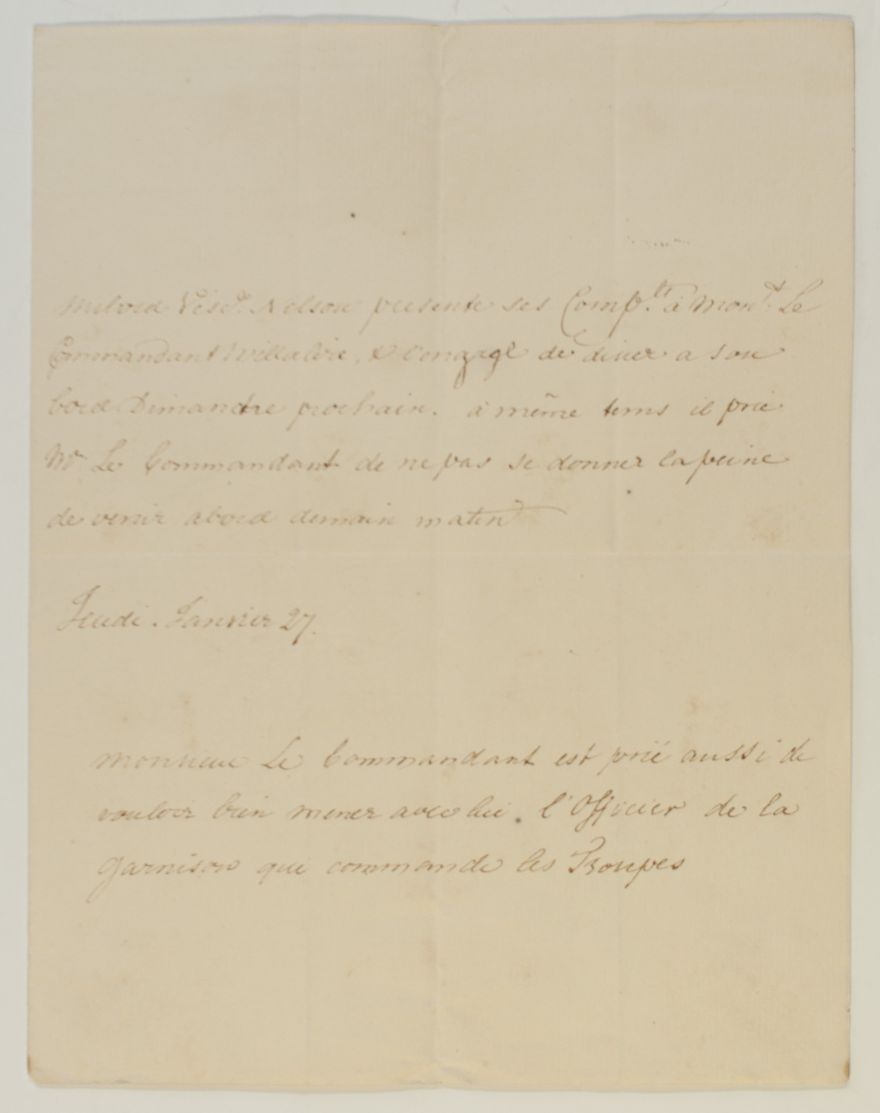 Milord Visc.t Nelson presente ses Comp.ts à Mon.r Le
Commandant Millalire, & l'engage de diner a son
bord Dimanche prochain. à même tems il prie
Mr Le Commandant de ne pas se donner la peine
de venir abord demain matin
Jeudi. Janvier 27.
Monsieur Le Commandant est prié aussi de
vouloir bien mener avec lui. l'Officier de la
garnison qui commande les Troupes